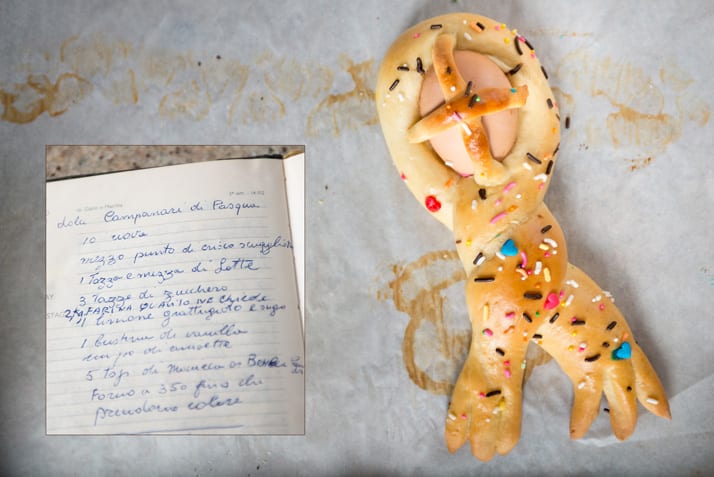 Campanari di Pasqua
10 uova
mezzo punto di crisco
1 Tazza e mezza di Latte
3 Tazze di zucchero
FARINA QUANTO NE chiede
1 limone grattugiato e sugo
1 bustina di vaniglia
un po di
5 di
Forno a 350 fino che
prendono colore